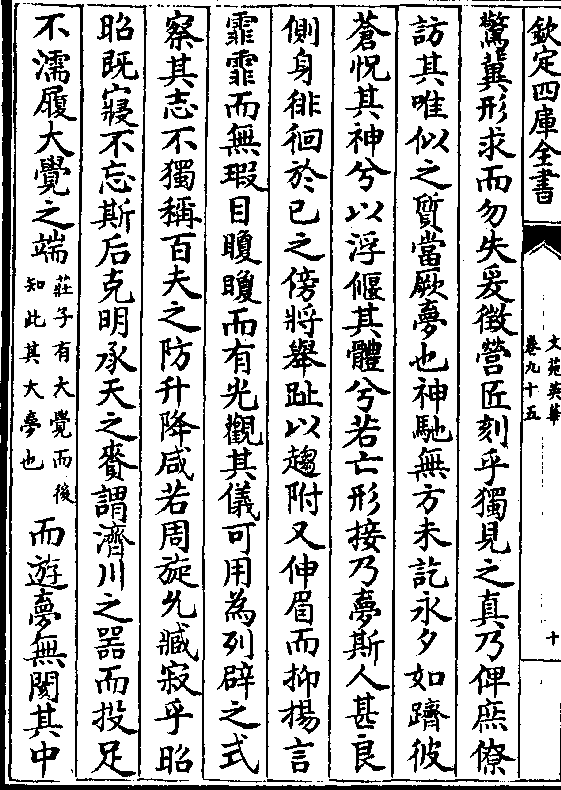 欽定四庫全書
文苑英華
卷九十五
十
驚冀形求而勿失爰徵營匠刻乎獨見之真乃俾庶僚
訪其唯似之質當厥夢也神馳無方未訖永夕如躋彼
蒼怳其神兮以浮偃其體兮若亡形接乃夢斯人甚良
側身徘徊於已之傍將舉趾以趨附又伸眉而抑揚言
霏霏而無瑕目瞍瞍而有光觀其儀可用為列辟之式
察其志不獨稱百夫之防升降咸若周旋允臧寂乎昭
昭既寤不忘斯后克明承天之賚謂濟川之器而投足
不濡履大覺之端莊子有大覺而後知此其大夢也而遊夢無閡其中